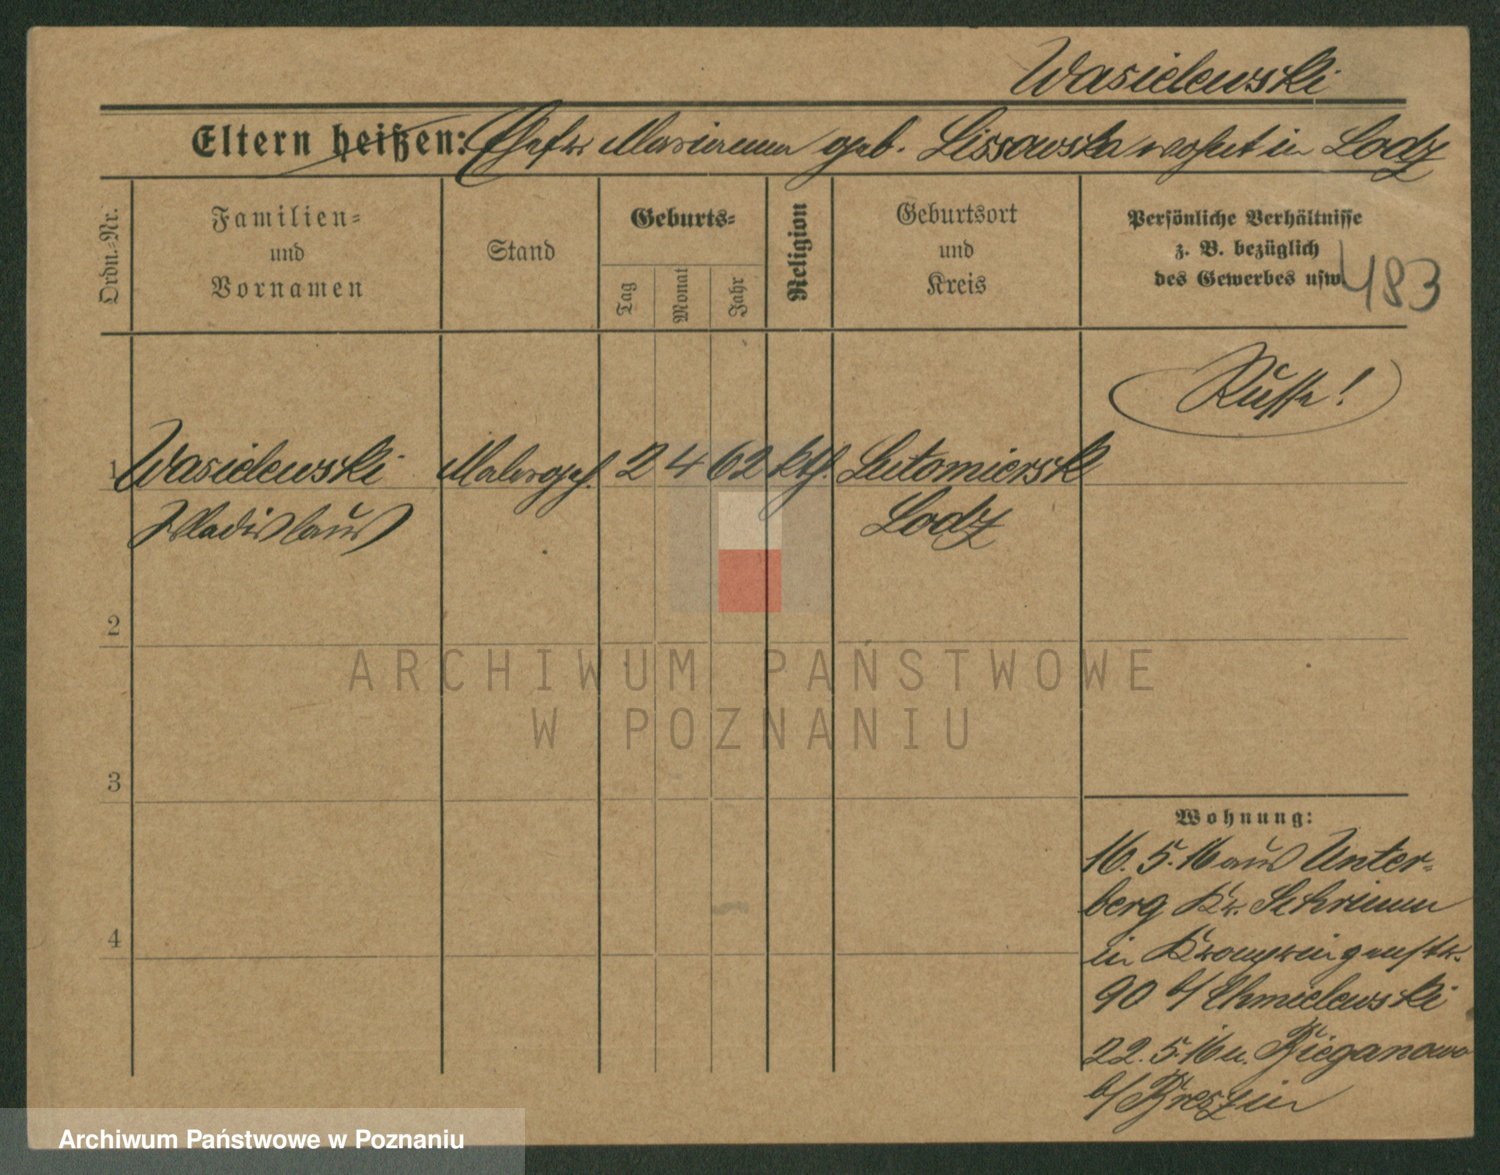 Wasielewski
Eltern heißen: Ehefr Marianna geb. Lissowska wohnt in Lodz
Ordn.-Nr.
Familien-
und
Vornamen
Stand
Geburts-
Tag
Monat
Jahr
Religion
Geburtsort
und
Kreis
Persönliche Verhältnisse
z. B. bezüglich
des Gewerbes usw.
483
Russe!
1 Wasielewski Malergeh. 2 4 62 kth. Lutomiersk
Wladislaus Lodz
2
3
4
Wohnung:
16. 5. 16 aus Unter-
berg Kr. Schrimm
in Kronprinzenstr.
90 b/ Chmielewski
22. 5. 16 n. Bieganowo
b/ Breszin
ARCHIWUM PAŃSTWOWE
W POZNANIU
Archiwum Państwowe w Poznaniu